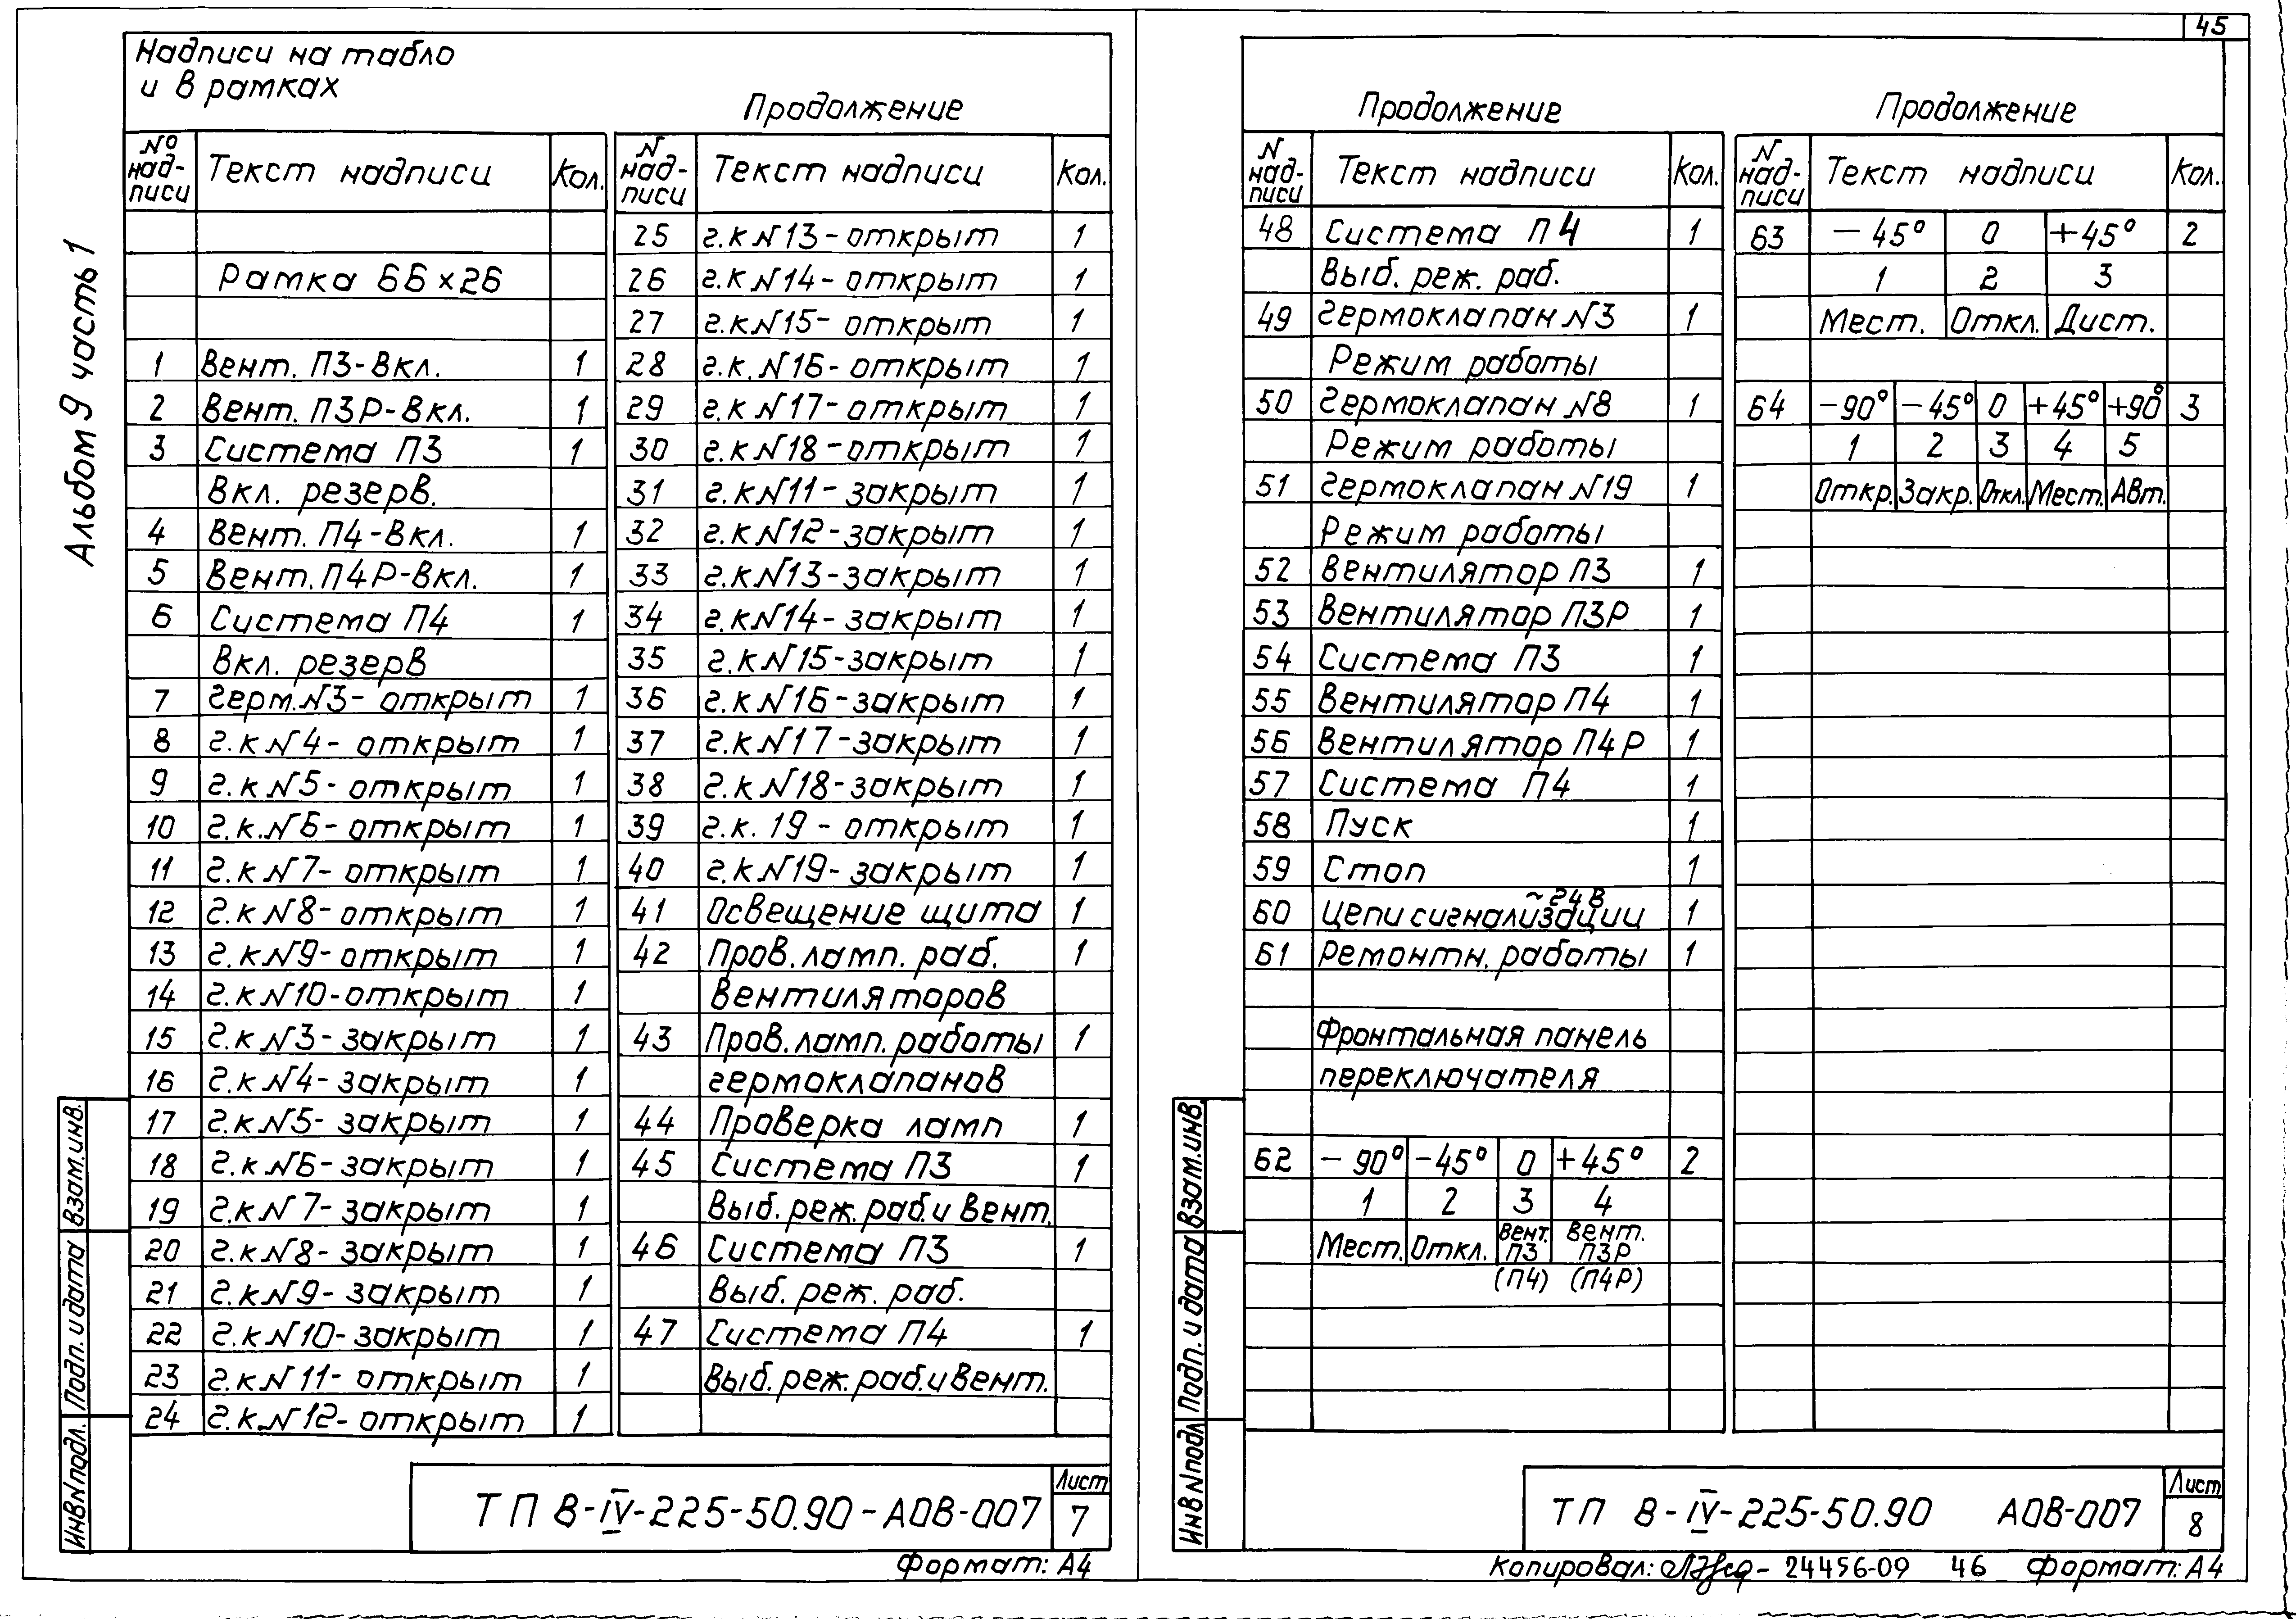 Альбом 9 часть 1
Надписи на табло
и в рамках
Продолжение
№ над-писи Текст надписи Кол.
Рамка 66×26
1 Вент. П3-Вкл. 1
2 Вент. П3Р-Вкл. 1
3 Система П3 1
Вкл. резерв.
4 Вент. П4-Вкл. 1
5 Вент. П4Р-Вкл. 1
6 Система П4 1
Вкл. резерв
7 герм. N3- открыт 1
8 г.к N4- открыт 1
9 г.к N5- открыт 1
10 г.к. N6- открыт 1
11 г.к N7- открыт 1
12 г.к N8- открыт 1
13 г.к N9- открыт 1
14 г.к N10- открыт 1
15 г.к N3- закрыт 1
16 г.к N4- закрыт 1
17 г.к N5- закрыт 1
18 г.к N6- закрыт 1
19 г.к N7- закрыт 1
20 г.к N8- закрыт 1
21 г.к N9- закрыт 1
22 г.к N10- закрыт 1
23 г.к N11- открыт 1
24 г.к N12- открыт 1
N над-писи Текст надписи Кол.
25 г.к N13- открыт 1
26 г.к N14- открыт 1
27 г.к N15- открыт 1
28 г.к. N16- открыт 1
29 г.к N17- открыт 1
30 г.к N18- открыт 1
31 г.к N11- закрыт 1
32 г.к N12- закрыт 1
33 г.к N13- закрыт 1
34 г.к N14- закрыт 1
35 г.к N15- закрыт 1
36 г.к N16- закрыт 1
37 г.к N17- закрыт 1
38 г.к N18- закрыт 1
39 г.к. 19 - открыт 1
40 г.к N19- закрыт 1
41 Освещение щита 1
42 Пров. ламп. раб. 1
Вентиляторов
43 Пров. ламп. работы 1
гермоклапанов
44 Проверка ламп 1
45 Система П3 1
Выб. реж. раб. и Вент.
46 Система П3 1
Выб. реж. раб.
47 Система П4 1
Выб. реж. раб. и Вент.
Взам. инв.
Подп. и дата
Инв N подл.
ТП В-IV-225-50.90-АОВ-007
Лист
7
Формат: А4
45
Продолжение
Продолжение
N над-писи Текст надписи Кол.
48 Система П4 1
Выб. реж. раб.
49 Гермоклапан N3 1
Режим работы
50 Гермоклапан N8 1
Режим работы
51 Гермоклапан N19 1
Режим работы
52 Вентилятор П3 1
53 Вентилятор П3Р 1
54 Система П3 1
55 Вентилятор П4 1
56 Вентилятор П4Р 1
57 Система П4 1
58 Пуск 1
59 Стоп 1
60 Цепи сигнализации ~24В 1
61 Ремонтн. работы 1
Фронтальная панель
переключателя
62 - 90° -45° 0 +45° 2
1 2 3 4
Мест. Откл. Вент. П3 Вент. П3Р
(П4) (П4Р)
N над-писи Текст надписи Кол.
63 - 45° 0 +45° 2
1 2 3
Мест. Откл. Дист.
64 -90° -45° 0 +45° +90° 3
1 2 3 4 5
Откр. Закр. Откл. Мест. Авт.
Взам. инв.
Подп. и дата
Инв N подл
ТП В-IV-225-50.90 АОВ-007
Лист
8
Копировал: - 24456-09 46 Формат: А4